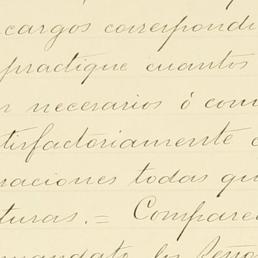 cargos correspondi
practique cuantos
necesarios ó com
tisfactoriamente
raciones todas qu
turas. = Compare
mandato los Seño